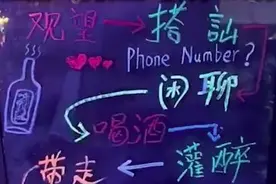 观望→搭讪
Phone Number?
闲聊
喝酒
带走←灌醉